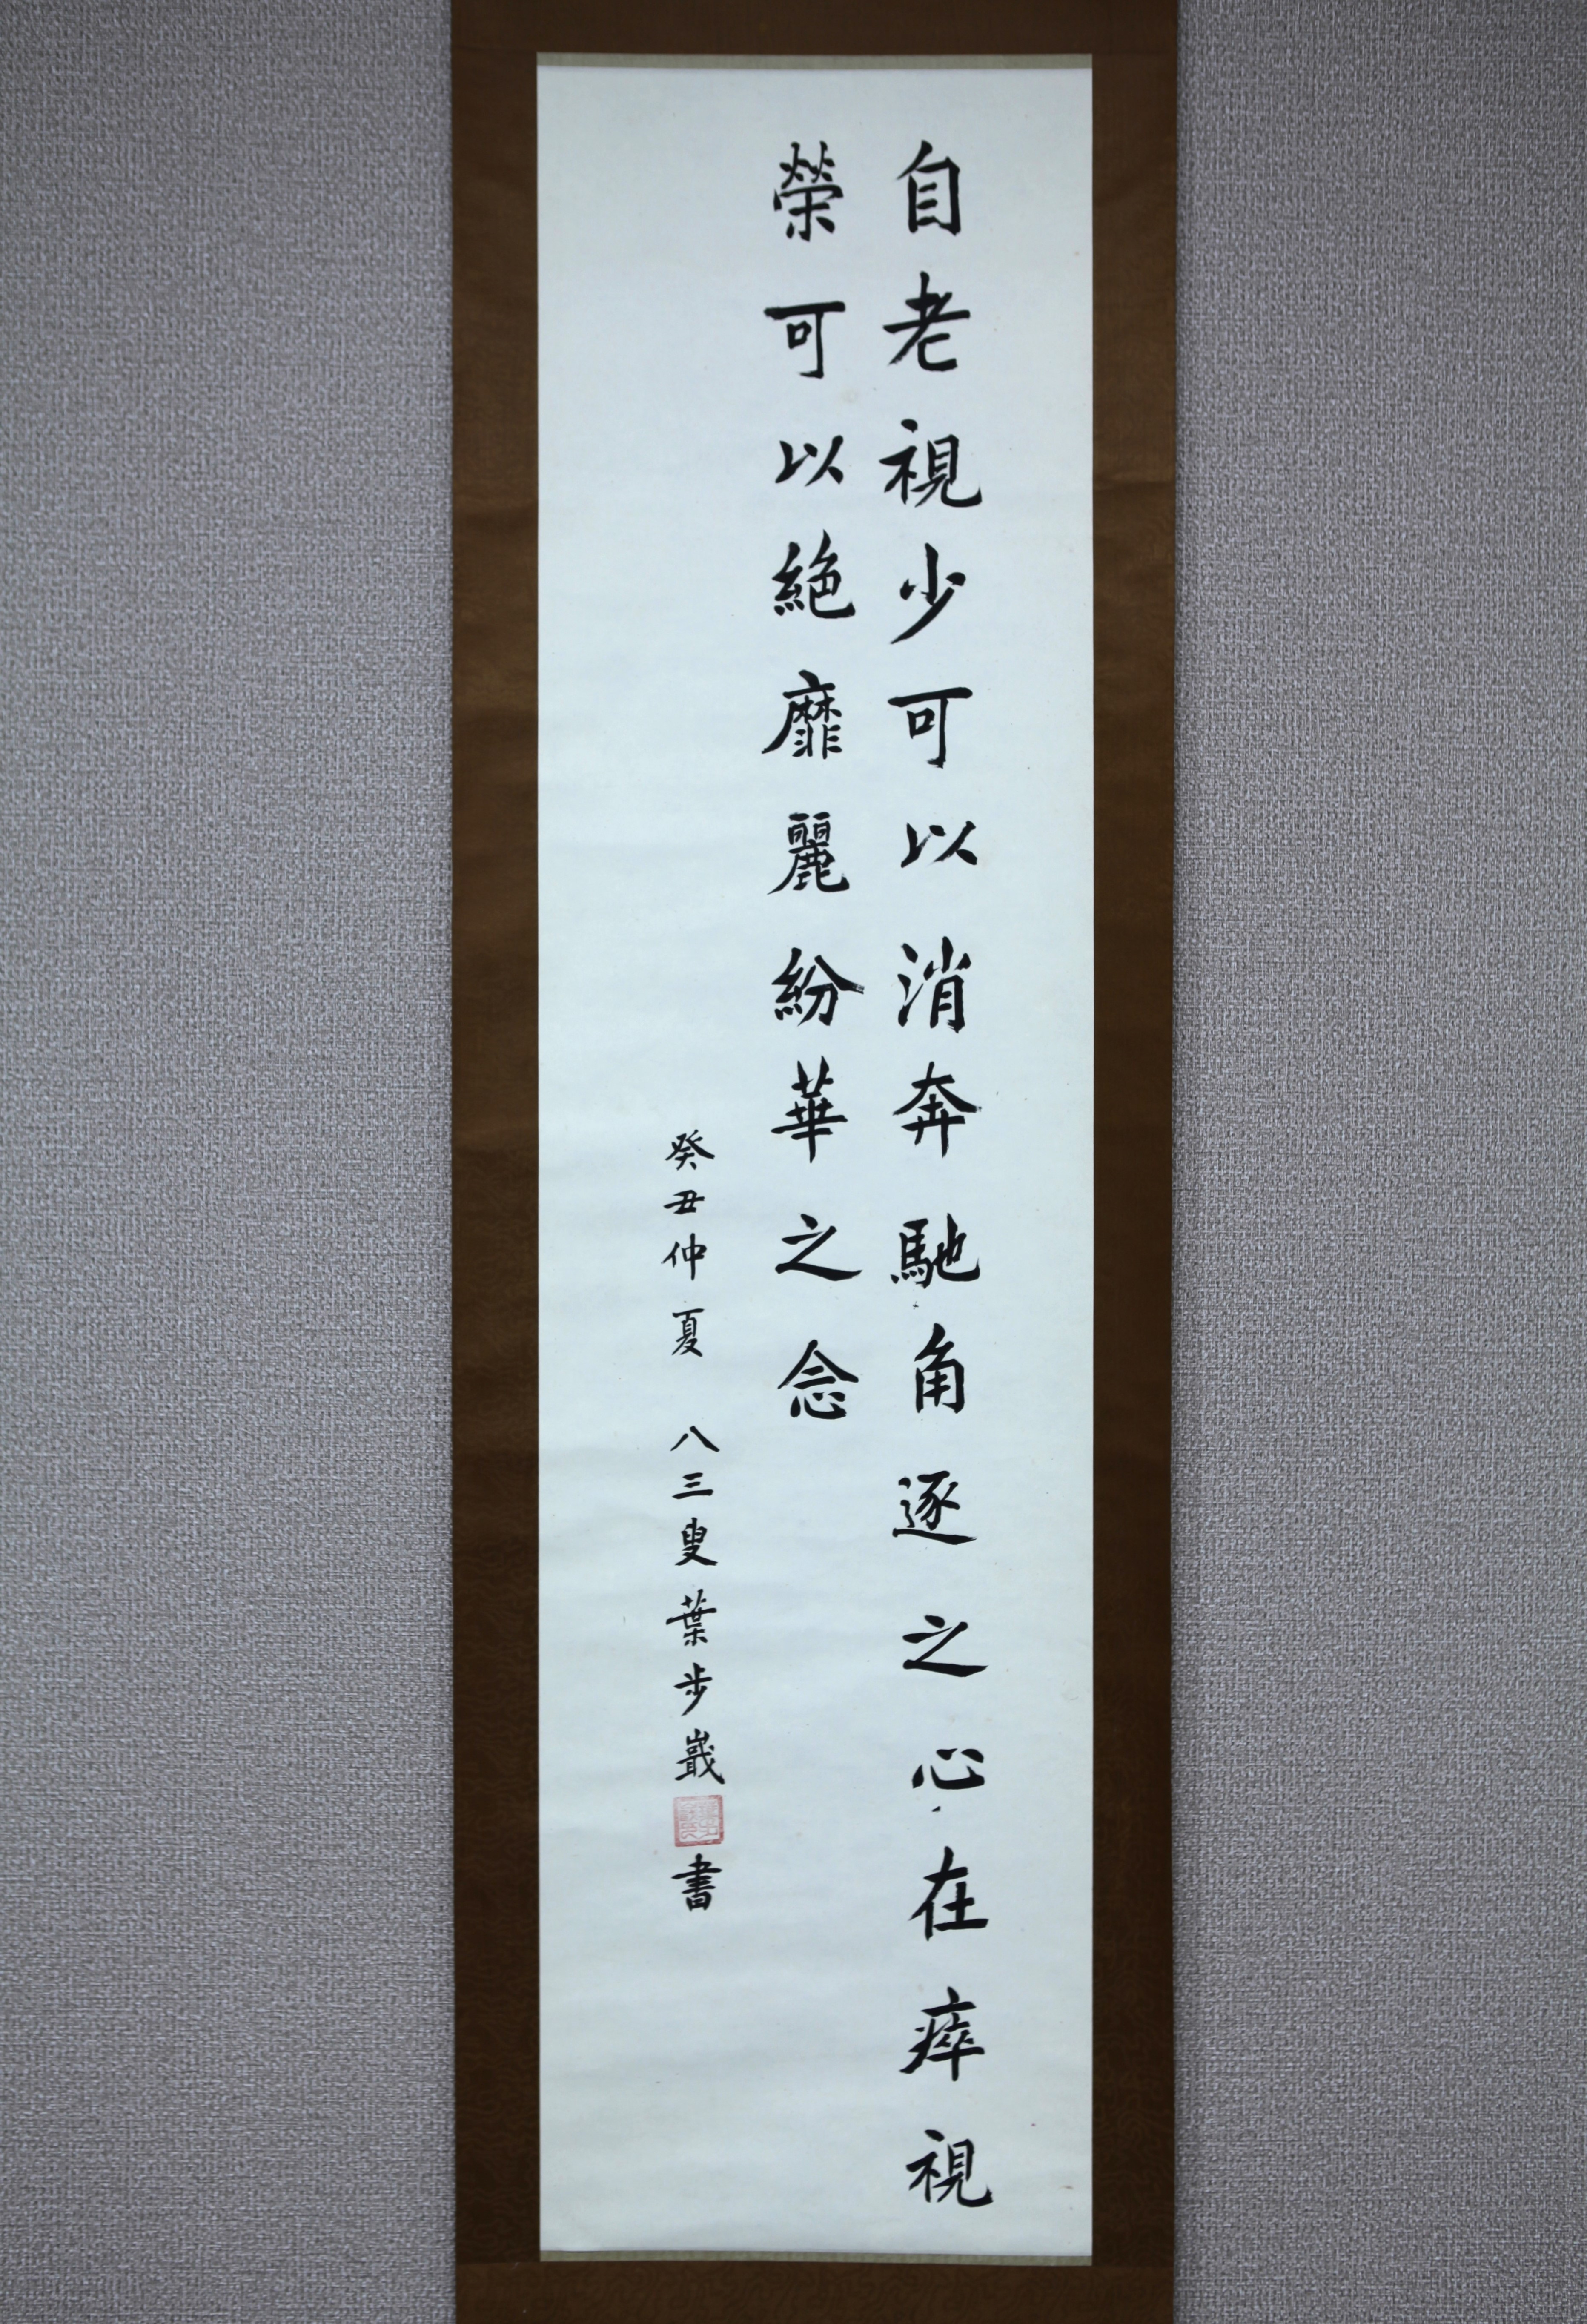 自老視少可以消奔馳角逐之心在瘁視
榮可以絕靡麗紛華之念
癸丑仲夏 八三叟葉步嶯書